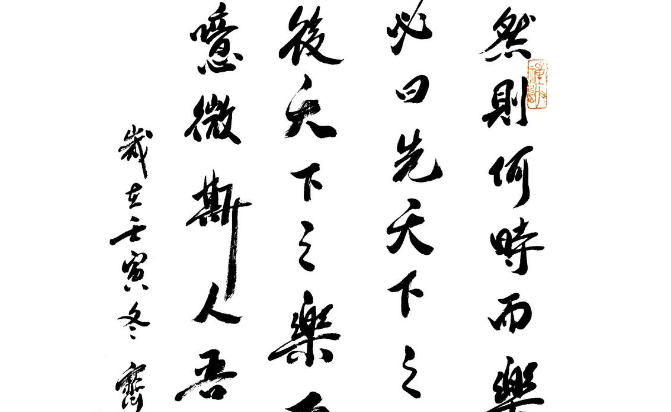 然則何時而樂
必曰先天下之
後天下之樂而
噫微斯人吾
歲在壬寅冬